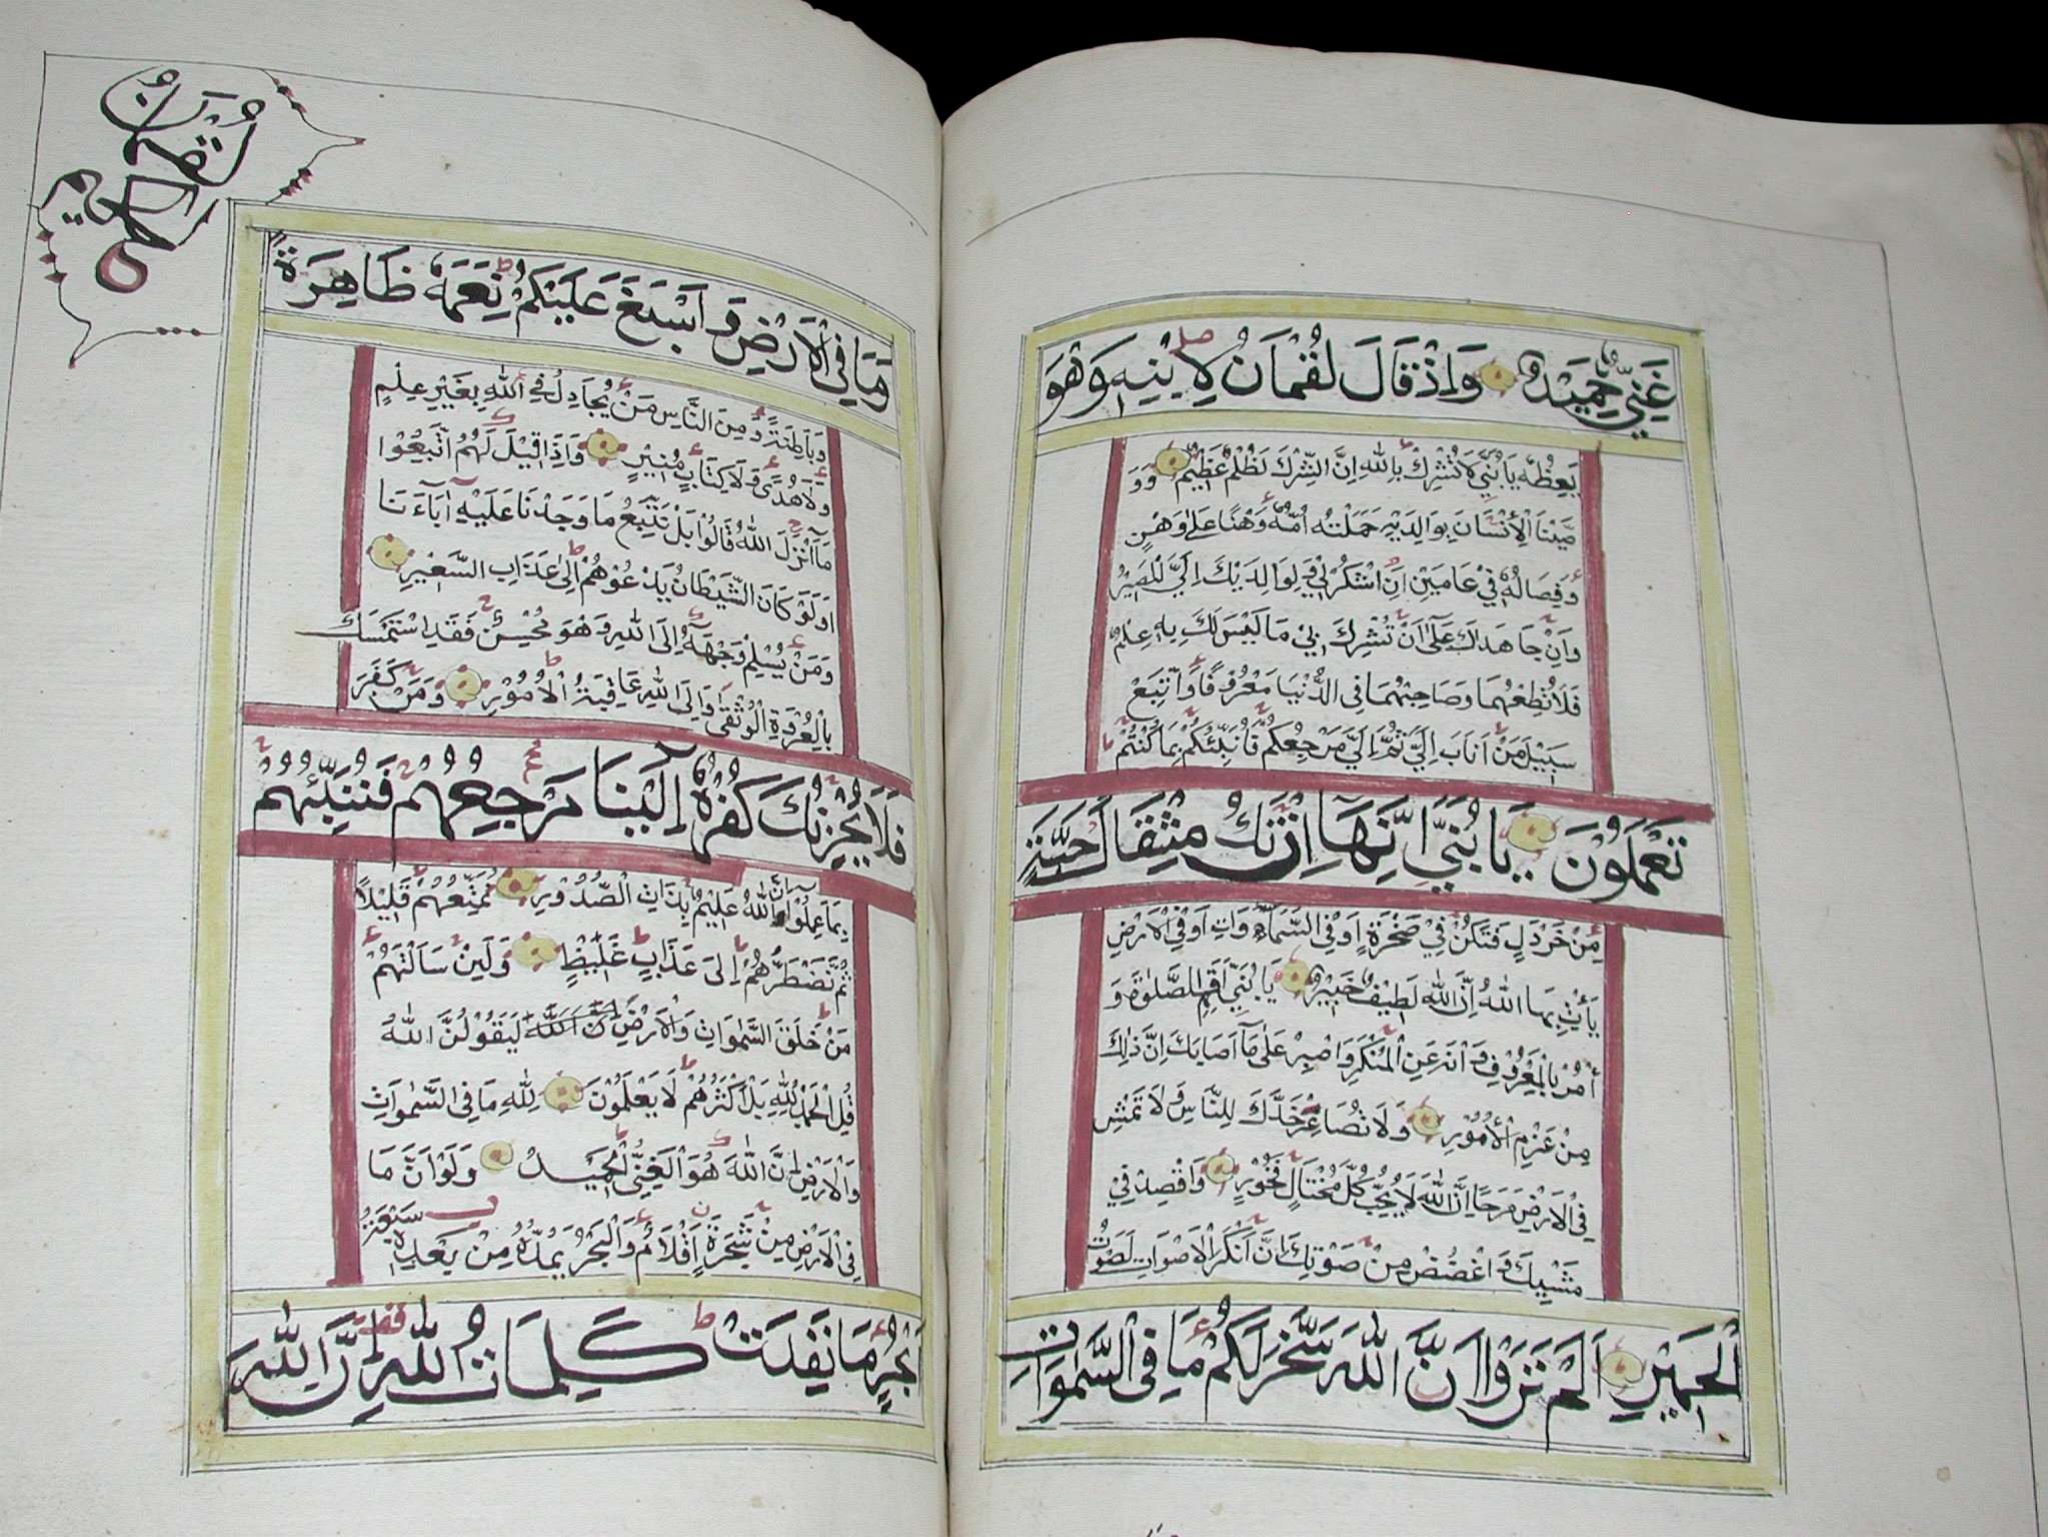 غَنِيٌّ حَمِيدٌ وَاِذْ قَالَ لُقْمَانُ لِابْنِهِ وَهُوَ
يَعِظُهُ يَا بُنَيَّ لَا تُشْرِكْ بِاللهِ اِنَّ الشِّرْكَ لَظُلْمٌ عَظِيمٌ وَوَ
صَّيْنَا الْاِنْسَانَ بِوَالِدَيْهِ حَمَلَتْهُ اُمُّهُ وَهْنًا عَلٰى وَهْنٍ
وَفِصَالُهُ فِي عَامَيْنِ اَنِ اشْكُرْ لِي وَلِوَالِدَيْكَ اِلَيَّ الْمَصِيرُ
وَاِنْ جَاهَدٰكَ عَلٰٓى اَنْ تُشْرِكَ بِي مَا لَيْسَ لَكَ بِهِ عِلْمٌ
فَلَا تُطِعْهُمَا وَصَاحِبْهُمَا فِي الدُّنْيَا مَعْرُوفًا وَاتَّبِعْ
سَبِيلَ مَنْ اَنَابَ اِلَيَّ ثُمَّ اِلَيَّ مَرْجِعُكُمْ فَاُنَبِّئُكُمْ بِمَا كُنْتُمْ
تَعْمَلُونَ يَا بُنَيَّ اِنَّهَآ اِنْ تَكُ مِثْقَالَ حَبَّةٍ
مِنْ خَرْدَلٍ فَتَكُنْ فِي صَخْرَةٍ اَوْ فِي السَّمٰوَاتِ اَوْ فِي الْاَرْضِ
يَأْتِ بِهَا اللهُ اِنَّ اللهَ لَطِيفٌ خَبِيرٌ يَا بُنَيَّ اَقِمِ الصَّلٰوةَ وَ
أْمُرْ بِالْمَعْرُوفِ وَانْهَ عَنِ الْمُنْكَرِ وَاصْبِرْ عَلٰى مَآ اَصَابَكَ اِنَّ ذٰلِكَ
مِنْ عَزْمِ الْاُمُورِ وَلَا تُصَاعِرْ خَدَّكَ لِلنَّاسِ وَلَا تَمْشِ
فِي الْاَرْضِ مَرَحًا اِنَّ اللهَ لَا يُحِبُّ كُلَّ مُخْتَالٍ فَخُورٍ وَاقْصِدْ فِي
مَشْيِكَ وَاغْضُضْ مِنْ صَوْتِكَ اِنَّ اَنْكَرَ الْاَصْوَاتِ لَصَوْتُ
الْحَمِيرِ اَلَمْ تَرَوْا اَنَّ اللهَ سَخَّرَ لَكُمْ مَا فِي السَّمٰوَاتِ
لُقْمٰنُ
وَمَا فِي الْاَرْضِ وَاَسْبَغَ عَلَيْكُمْ نِعَمَهُ ظَاهِرَةً
وَبَاطِنَةً وَمِنَ النَّاسِ مَنْ يُجَادِلُ فِي اللهِ بِغَيْرِ عِلْمٍ
وَلَا هُدًى وَلَا كِتَابٍ مُنِيرٍ وَاِذَا قِيلَ لَهُمُ اتَّبِعُوا
مَآ اَنْزَلَ اللهُ قَالُوا بَلْ نَتَّبِعُ مَا وَجَدْنَا عَلَيْهِ اٰبَآءَنَا
اَوَلَوْ كَانَ الشَّيْطَانُ يَدْعُوهُمْ اِلٰى عَذَابِ السَّعِيرِ
وَمَنْ يُسْلِمْ وَجْهَهُ اِلَى اللهِ وَهُوَ مُحْسِنٌ فَقَدِ اسْتَمْسَكَ
بِالْعُرْوَةِ الْوُثْقٰى وَاِلَى اللهِ عَاقِبَةُ الْاُمُورِ وَمَنْ كَفَرَ
فَلَا يَحْزُنْكَ كُفْرُهُ اِلَيْنَا مَرْجِعُهُمْ فَنُنَبِّئُهُمْ
بِمَا عَمِلُوا اِنَّ اللهَ عَلِيمٌ بِذَاتِ الصُّدُورِ نُمَتِّعُهُمْ قَلِيلًا
ثُمَّ نَضْطَرُّهُمْ اِلٰى عَذَابٍ غَلِيظٍ وَلَئِنْ سَاَلْتَهُمْ
مَنْ خَلَقَ السَّمٰوَاتِ وَالْاَرْضَ لَيَقُولُنَّ اللهُ
قُلِ الْحَمْدُ لِلّٰهِ بَلْ اَكْثَرُهُمْ لَا يَعْلَمُونَ لِلّٰهِ مَا فِي السَّمٰوَاتِ
وَالْاَرْضِ اِنَّ اللهَ هُوَ الْغَنِيُّ الْحَمِيدُ وَلَوْ اَنَّ مَا
فِي الْاَرْضِ مِنْ شَجَرَةٍ اَقْلَامٌ وَالْبَحْرُ يَمُدُّهُ مِنْ بَعْدِهِ سَبْعَةُ
اَبْحُرٍ مَا نَفِدَتْ كَلِمَاتُ اللهِ اِنَّ اللهَ